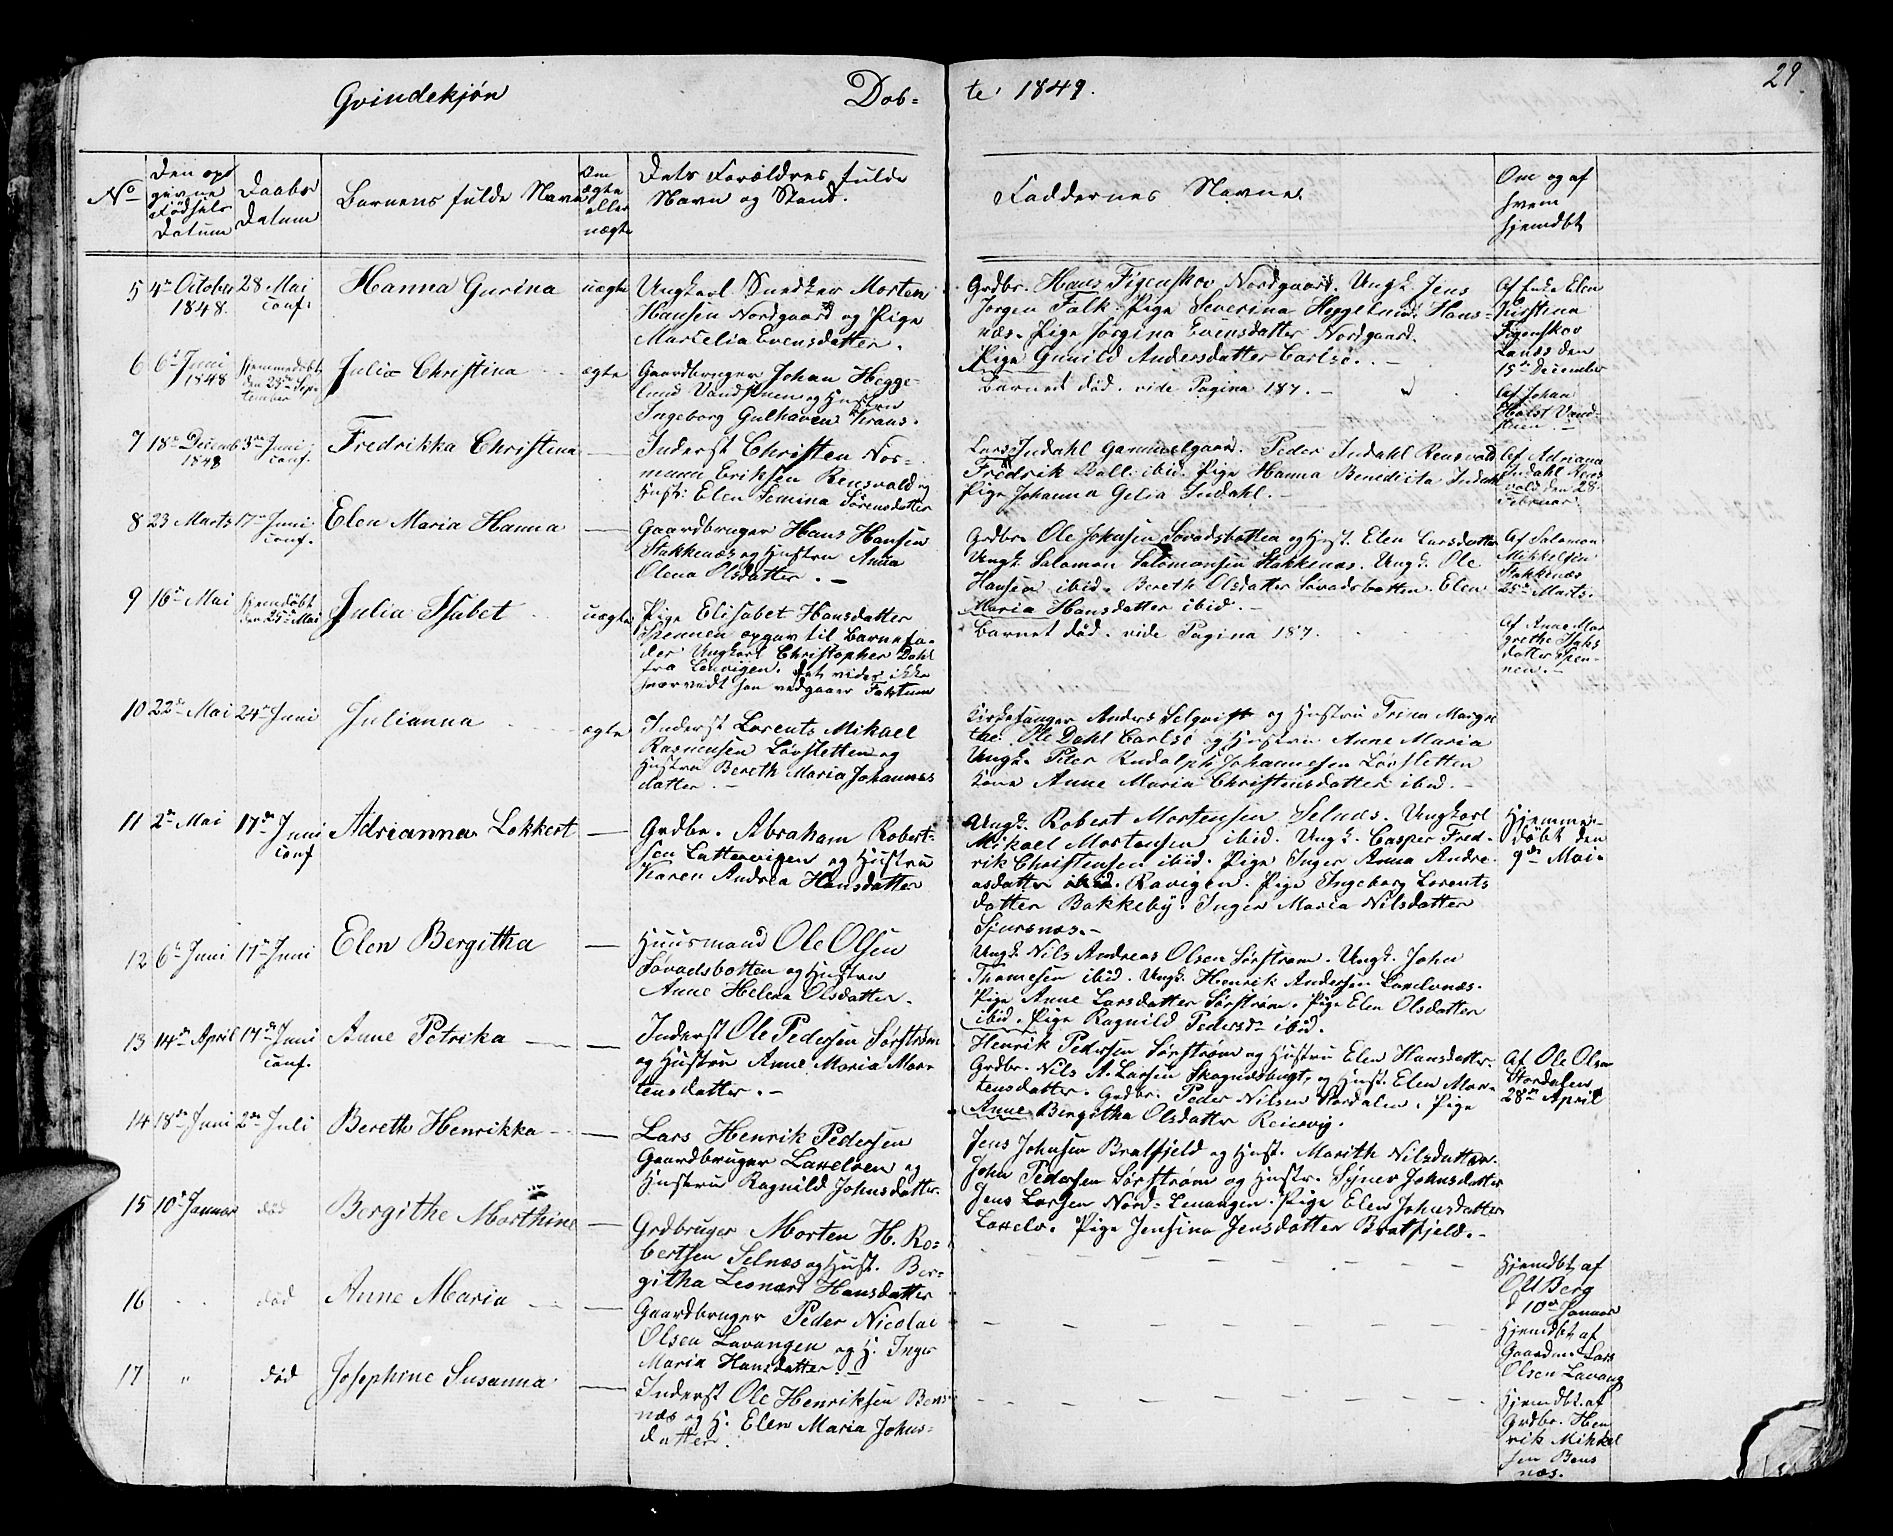 Qvindekjøn Døb= te 1849. 29.
No
Den op=
givne
Fødsels
Datum
Daabs
Datum
Barnets fulde Navn
Om
ægte
eller
uægte
Dets Forældres fulde
Navn og Stand.
Faddernes Navne.
Om og af
hvem
hjemdbt
5 4de October 28 Mai Hanna Gurina uægte
1848. conf.
Ungkarl Snedker Morten
Hansen Nordgaard og Pige
Marcelia Evensdatter.
Grdbr. Hans Figenskov Nordgaard. Ungk. Jens
Jørgen Falk. Pige Severina Heggelund Hans=
næs. Pige Jørgina Evensdatter Nordgaard.
Pige Gunild Andersdatter Carlsø.
Af Enke Elen
Kirstina
Figenskov
den
15de December
6 6te Juni Hjemmedøbt Julia Christina ægte
1848 den 25de Sep=
tember
Gaardbruger Johan Hegge=
lund Vandstuen og Hustru
Ingeborg Gulhaven Kraus.
Barnet død. vide Pagina 187.
Af Johan
Holst Vand=
stuen
7 18de Decemb 3die Juni Fredrikka Christina —
1848 conf.
Inderst Christen Nor=
mann Eriksen Rensvold og
Hust: Elen Semina Sørensdatter
Lars Indahl Gammelgaard. Peder Indahl Rensvold
Fredrik Dall. ibid. Pige Hanna Benedicta Indahl
Pige Johanna Gelia Indahl.
Af Adriana
Indahl Rens
vold den 28.
Februar.
8 23 Marts 17de Juni Elen Maria Hanna —
conf.
Gaardbruger Hans Hansen
Stakkenæs og Hustru Anna
Olena Olsdatter.
Grdbr. Ole Johnsen Sovadsbotten og Hust. Elen Larsdatter
Ungk. Salomon Salomonsen Stakkenæs. Ungk. Ole
Hansen ibid. Bereth Olsdatter Sovadsbotten. Elen
Maria Hansdatter ibid.
Af Salomon
Mikkelsen
Stakkenæs
25de Marts.
9 16de Mai Hjemdøbt Julia Isabet uægte
den 25de Mai
Pige Elisabet Hansdatter
Spennen opgav til Barnefa=
der Ungkarl Christopher Dahl
fra Lanvigen. det vides ikke
hvorvidt han vedgaaer Faktum
Barnet død. vide Pagina 187.
Af Anne Mar
grethe Hans
datter Spen=
nen.
10 22de Mai 24de Juni Julianna ægte
Inderst Lorents Mikael
Rasmusen Løvsletten og
Hustru Bereth Maria Johannes
datter.
Kirkesanger Anders Selqvist og Hustru Trina Margre
the. Ole Dahl Carlsø og Hustru Anne Maria
Ungk. Peter Rudolph Johannesen Løvsletten
Kone Anne Maria Christensdatter ibid.
11 2den Mai 17de Juni Adrianna Lokkert —
conf
Grdbr. Abraham Robert=
sen Lattervigen og Hustru
Karen Andrea Hansdatter
Ungk. Robert Mortensen Selnæs. Ungkarl
Mikael Mortensen ibid. Ungk. Casper Fred=
rik Christensen ibid. Pige Inger Anna Andre=
asdatter ibid. Ravigen. Pige Ingeborg Lorents
datter Bakkeby. Inger Maria Nilsdatter
Sjursnæs.
Hjemme=
døbt den
9de Mai.
12 6te Juni 17de Juni Elen Bergitha —
Huusmand Ole Olsen
Sovadsbotten og Hustru
Anne Helena Olsdatter.
Ungk. Nils Andreas Olsen Sørstrøm. Ungk. John
Thomesen ibid. Ungk. Henrik Andersen Laxelvnæs.
Pige Anne Larsdatter Sørstrøm. Pige Elen Olsdatter
ibid. Pige Ragnild Pedersdr ibid.
13 14de April 17de Juni Anne Petrika — —
conf.
Inderst Ole Pedersen Sørstrøm
og Hustru Anne Maria Mor=
tensdatter.
Henrik Pedersen Sørstrøm og Hustru Elen Hansdatter
Grdbr. Nils A. Larsen Skognæsbugt, og Hust. Elen Mor=
tensdatter. Grdbr. Peder Nilsen Stordalen. Pige
Anne Bergitha Olsdatter Reinsvig.
Af Ole Olsen
Stordalen
28de April
14 18de Juni 2den Juli Bereth Henrikka —
Lars Henrik Pedersen
Gaardbruger Laxelven og
Hustru Ragnild Johnsdatter.
Jens Johnsen Bratfjeld og Hust. Marith Nilsdatter.
John Pedersen Sørstrøm og Hustr. Synev Johnsdatter
Jens Larsen Nord=Lenangen. Pige Elen Johnsdatter
Laxelv. Pige Jensina Jensdatter Bratfjeld.
15 10de Januar død Bergithe Marthine —
Grdbruger Morten H. Ro=
bertsen Selnæs og Hust. Ber=
githa Leonard Hansdatter
Hjemdbt af
O U Berg
d 10de Januar
16 død Anne Maria —
Gaardbruger Peder Nicolai
Olsen Lavangen og H. Inger
Maria Hansdatter.
Hjemdbt af
Gaardm. Lars
Olsen Lavang
17 " død Josephine Susanna —
Inderst Ole Henriksen Bens
næs og H. Elen Maria Johns=
datter.
Hjemdbt. af
Grdbr. Hen
rik Mikkel
sen Bens
næs.